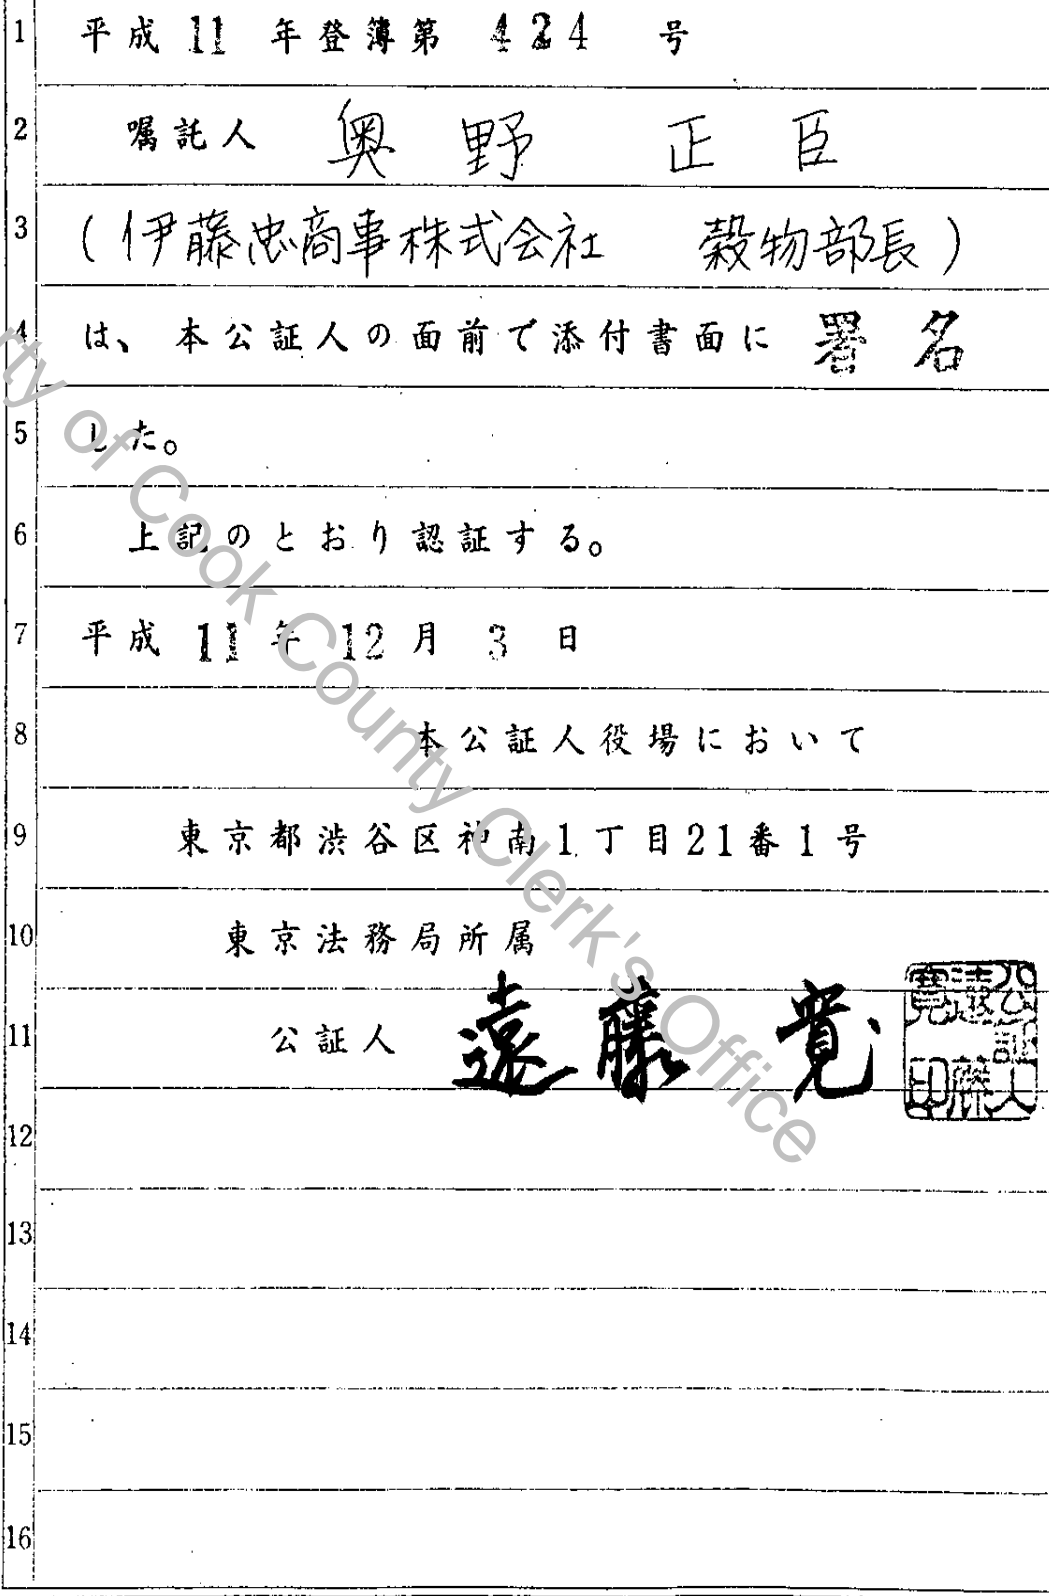 1 平成 11 年登簿第 424 号
2 嘱託人 奥野 正臣
3 (伊藤忠商事株式会社 穀物部長)
4 は、本公証人の面前で添付書面に 署名
5 した。
6 上記のとおり認証する。
7 平成 11 年 12 月 3 日
8 本公証人役場において
9 東京都渋谷区神南1丁目21番1号
10 東京法務局所属
11 公証人 遠藤 寛
公証人遠藤寛印
12
13
14
15
16
rty of Cook County Clerk's Office